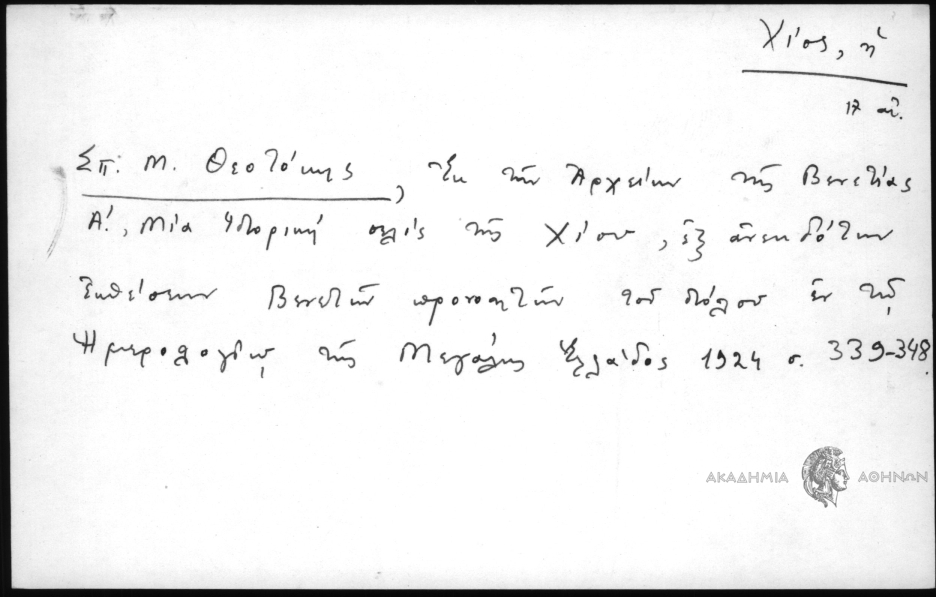 Χίος, ἡ
17 αἰ.
Σπ. Μ. Θεοτόκης, Ἐκ τῶν Ἀρχείων τῆς Βενετίας
Α΄, Μία ἱστορική σελίς τῆς Χίου, ἐξ ἀνεκδότων
Ἐκθέσεων Βενετῶν προνοητῶν τοῦ στόλου ἐν τῷ
Ἡμερολογίῳ τῆς Μεγάλης Ἑλλάδος 1924 σ. 339-348.
ΑΚΑΔΗΜΙΑ ΑΘΗΝΩΝ